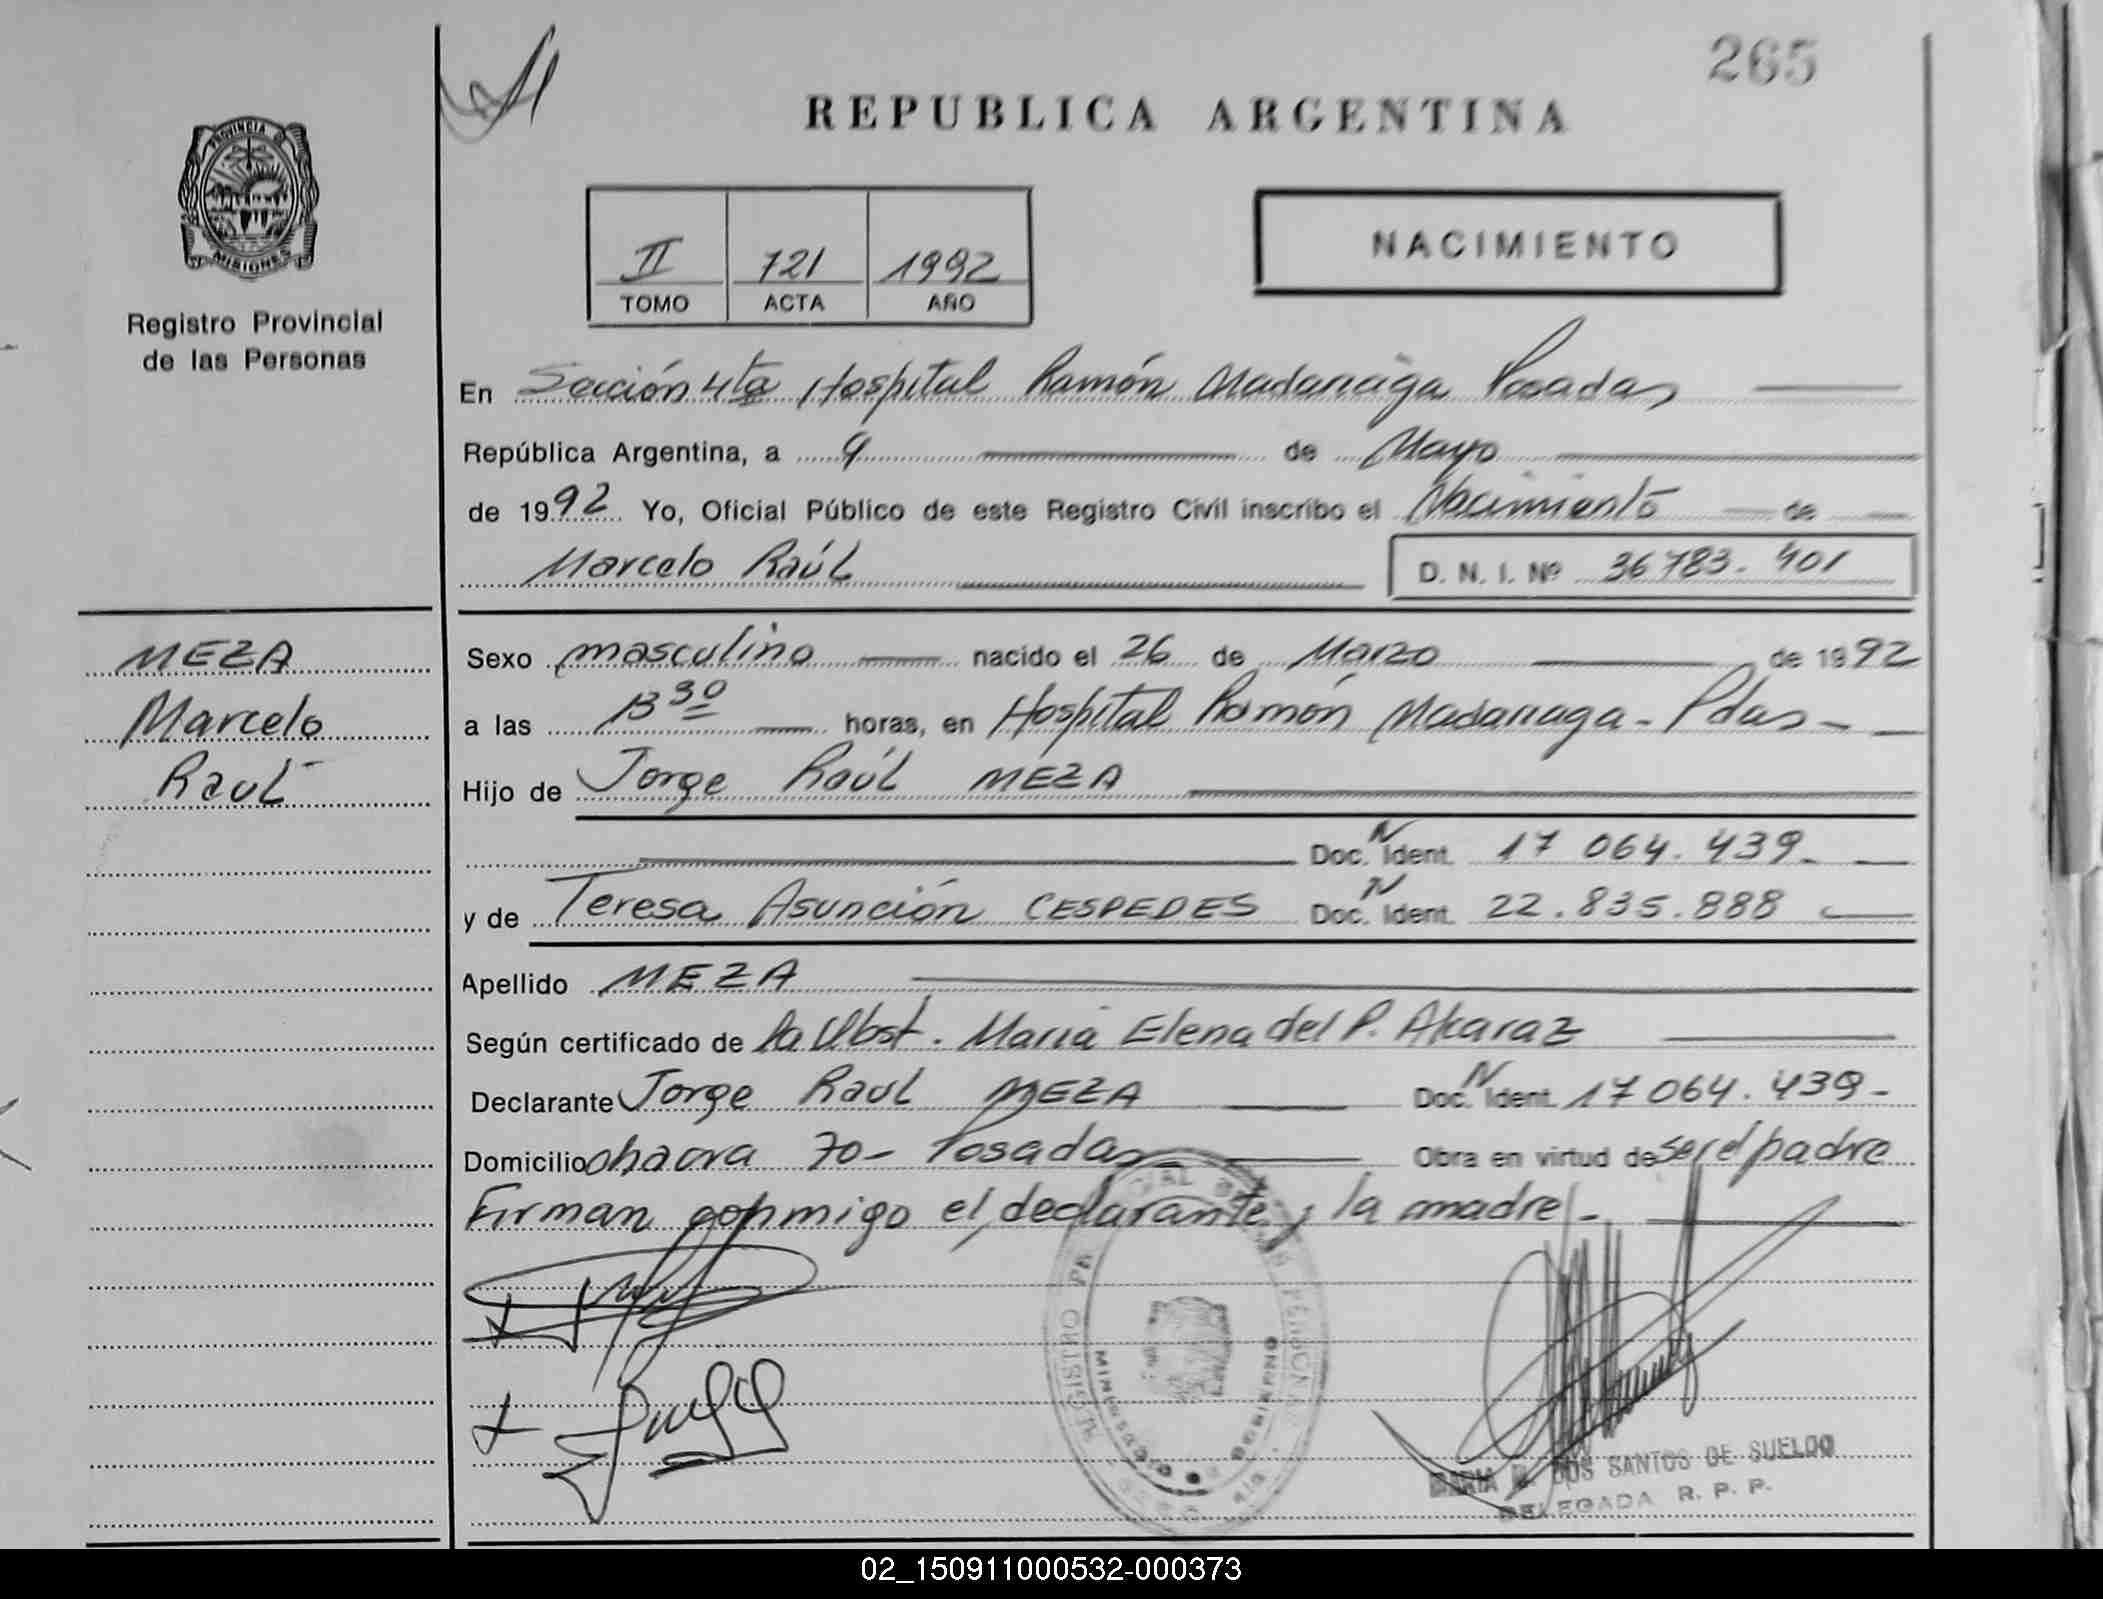 265
REPUBLICA ARGENTINA
PROVINCIA DE
MISIONES
Registro Provincial
de las Personas
II 721 1992
TOMO ACTA AÑO
NACIMIENTO
En Sección 4ta Hospital Ramón Madariaga Posadas
República Argentina, a 9 de Mayo
de 1992 Yo, Oficial Público de este Registro Civil inscribo el Nacimiento de
Marcelo Raúl D. N. I. Nº 36783.401
MEZA
Marcelo
Raúl
Sexo masculino nacido el 26 de Marzo de 1992
a las 13 30 horas, en Hospital Ramón Madariaga - Pdas -
Hijo de Jorge Raúl MEZA
Doc. N Ident. 17 064.439.
y de Teresa Asunción CESPEDES Doc. N Ident. 22.835.888
Apellido MEZA
Según certificado de la Obst. María Elena del P. Alcaraz
Declarante Jorge Raul MEZA Doc. N Ident. 17064.439-
Domicilio chacra 70- Posadas Obra en virtud de ser el padre
Firman conmigo el declarante y la madre -
REGISTRO
PERSONAS
MINISTERIO
GOBIERNO
DOS SANTOS DE SUELDO
DELEGADA R. P. P.
02_150911000532-000373